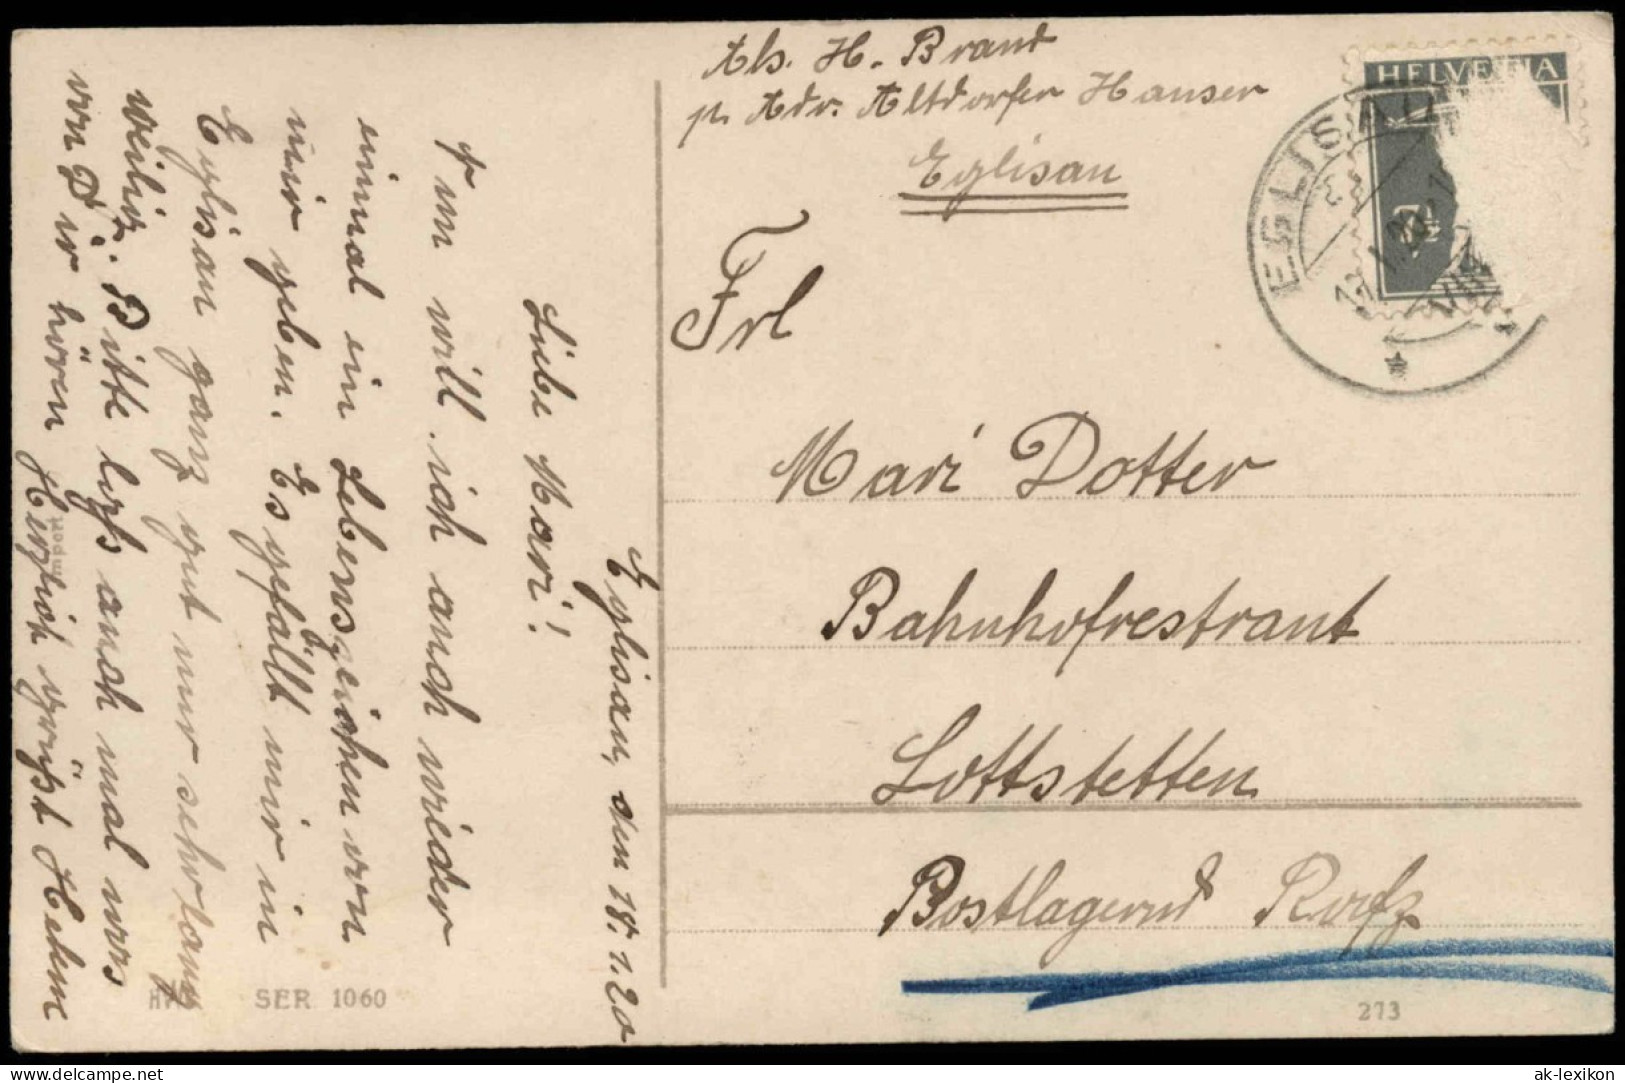 Abs. H. Brand
p. Adr. Altdorfer Hauser
Eglisau
HELVETIA
7½
EGLISAU
Frl
Mari Dotter
Bahnhofrestrant
Lottstetten
Postlagernd Rafz
273
Eglisau, den 18. 1. 20
Liebe Mari!
Nun will ich auch wieder
einmal ein Lebenszeichen von
mir geben. Es gefällt mir in
Eglisau ganz gut nur sehr lang
weilig. Bitte laß auch mal was
von Dir hören Herzlich grüßt
SER 1060
www.delcampe.net
ak-lexikon